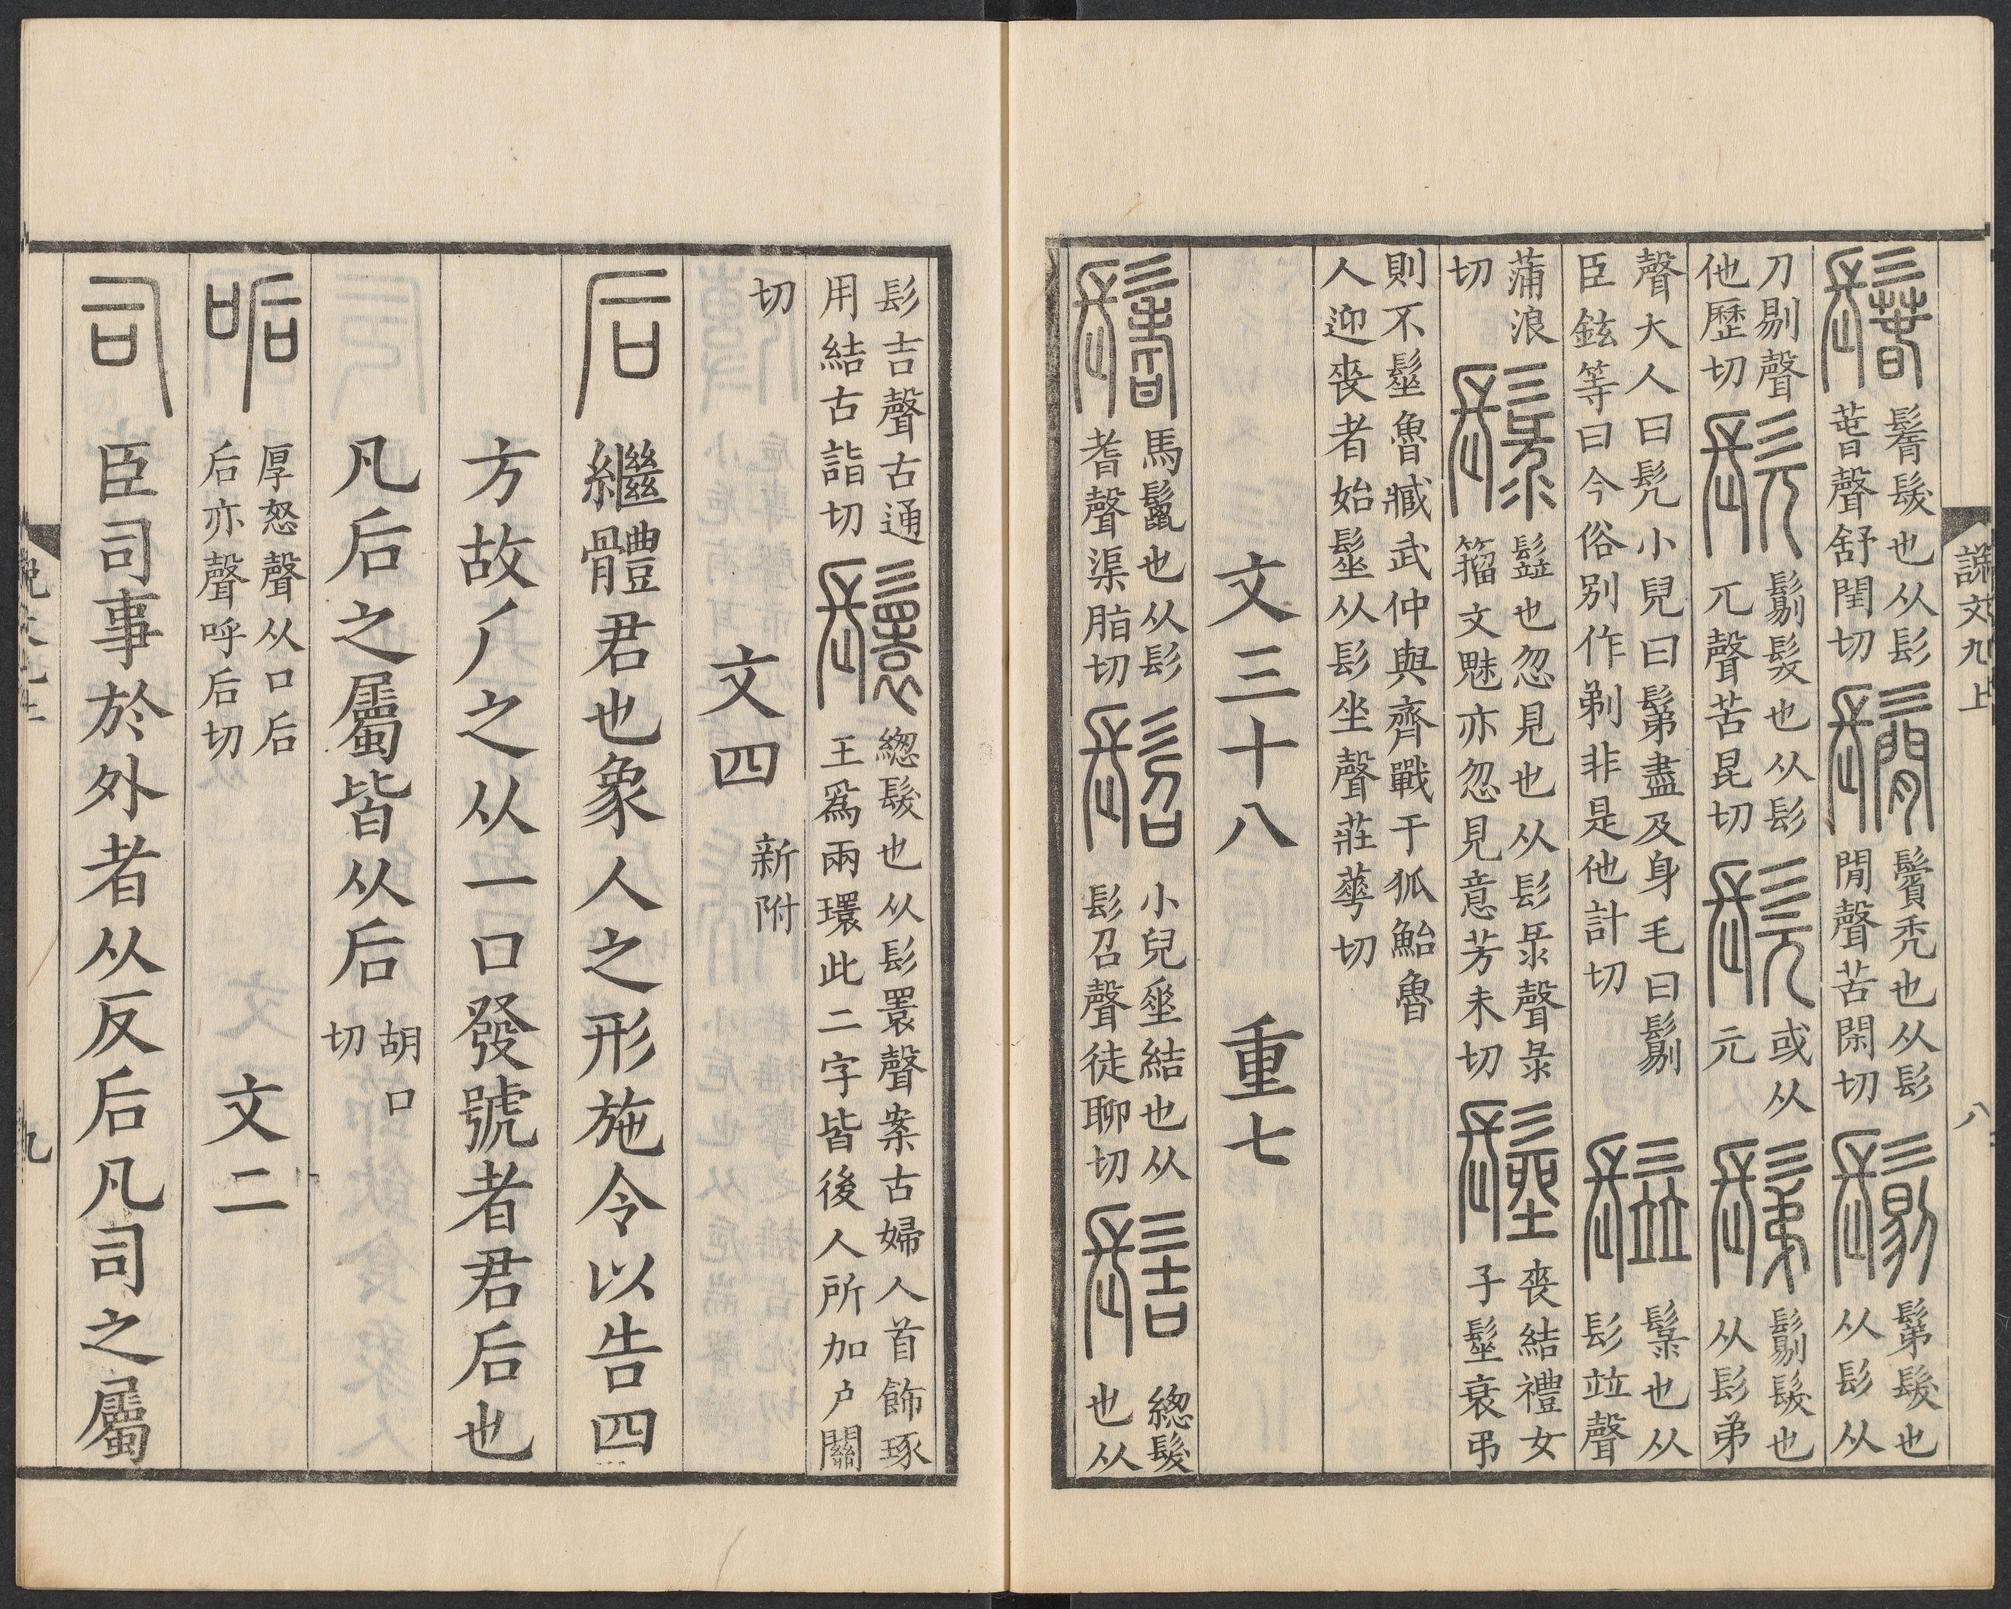 說文九上 八
鬊鬌髮也从髟𦶎聲舒閏切鬜鬢禿也从髟閒聲苦閑切䰂鬀髮也从髟从
刀剔聲他歷切髡䰂髮也从髟兀聲苦昆切髠或从元鬀䰂髮也从髟弟
聲大人曰髡小兒曰鬀盡及身毛曰䰂臣鉉等曰今俗別作剃非是他計切䰃鬆也从髟竝聲
蒲浪切䰍䰃也忽見也从髟彔聲彔籀文魅亦忽見意芳未切髽喪結禮女子髽衰弔
則不髽魯臧武仲與齊戰于狐鮐魯人迎喪者始髽从髟坐聲莊華切
文三十八 重七
鬐馬鬣也从髟耆聲渠脂切髫小兒垂結也从髟召聲徒聊切髻緫髮也从
髟吉聲古通用結古詣切鬟緫髮也从髟睘聲案古婦人首飾琢王爲兩環此二字皆後人所加户關
切
文四 新附
后繼體君也象人之形施令以告四
方故𠂆之从一口發號者君后也
凡后之屬皆从后胡口切
㖃厚怒聲从口后后亦聲呼后切
文二
司臣司事於外者从反后凡司之屬
說文九上 九